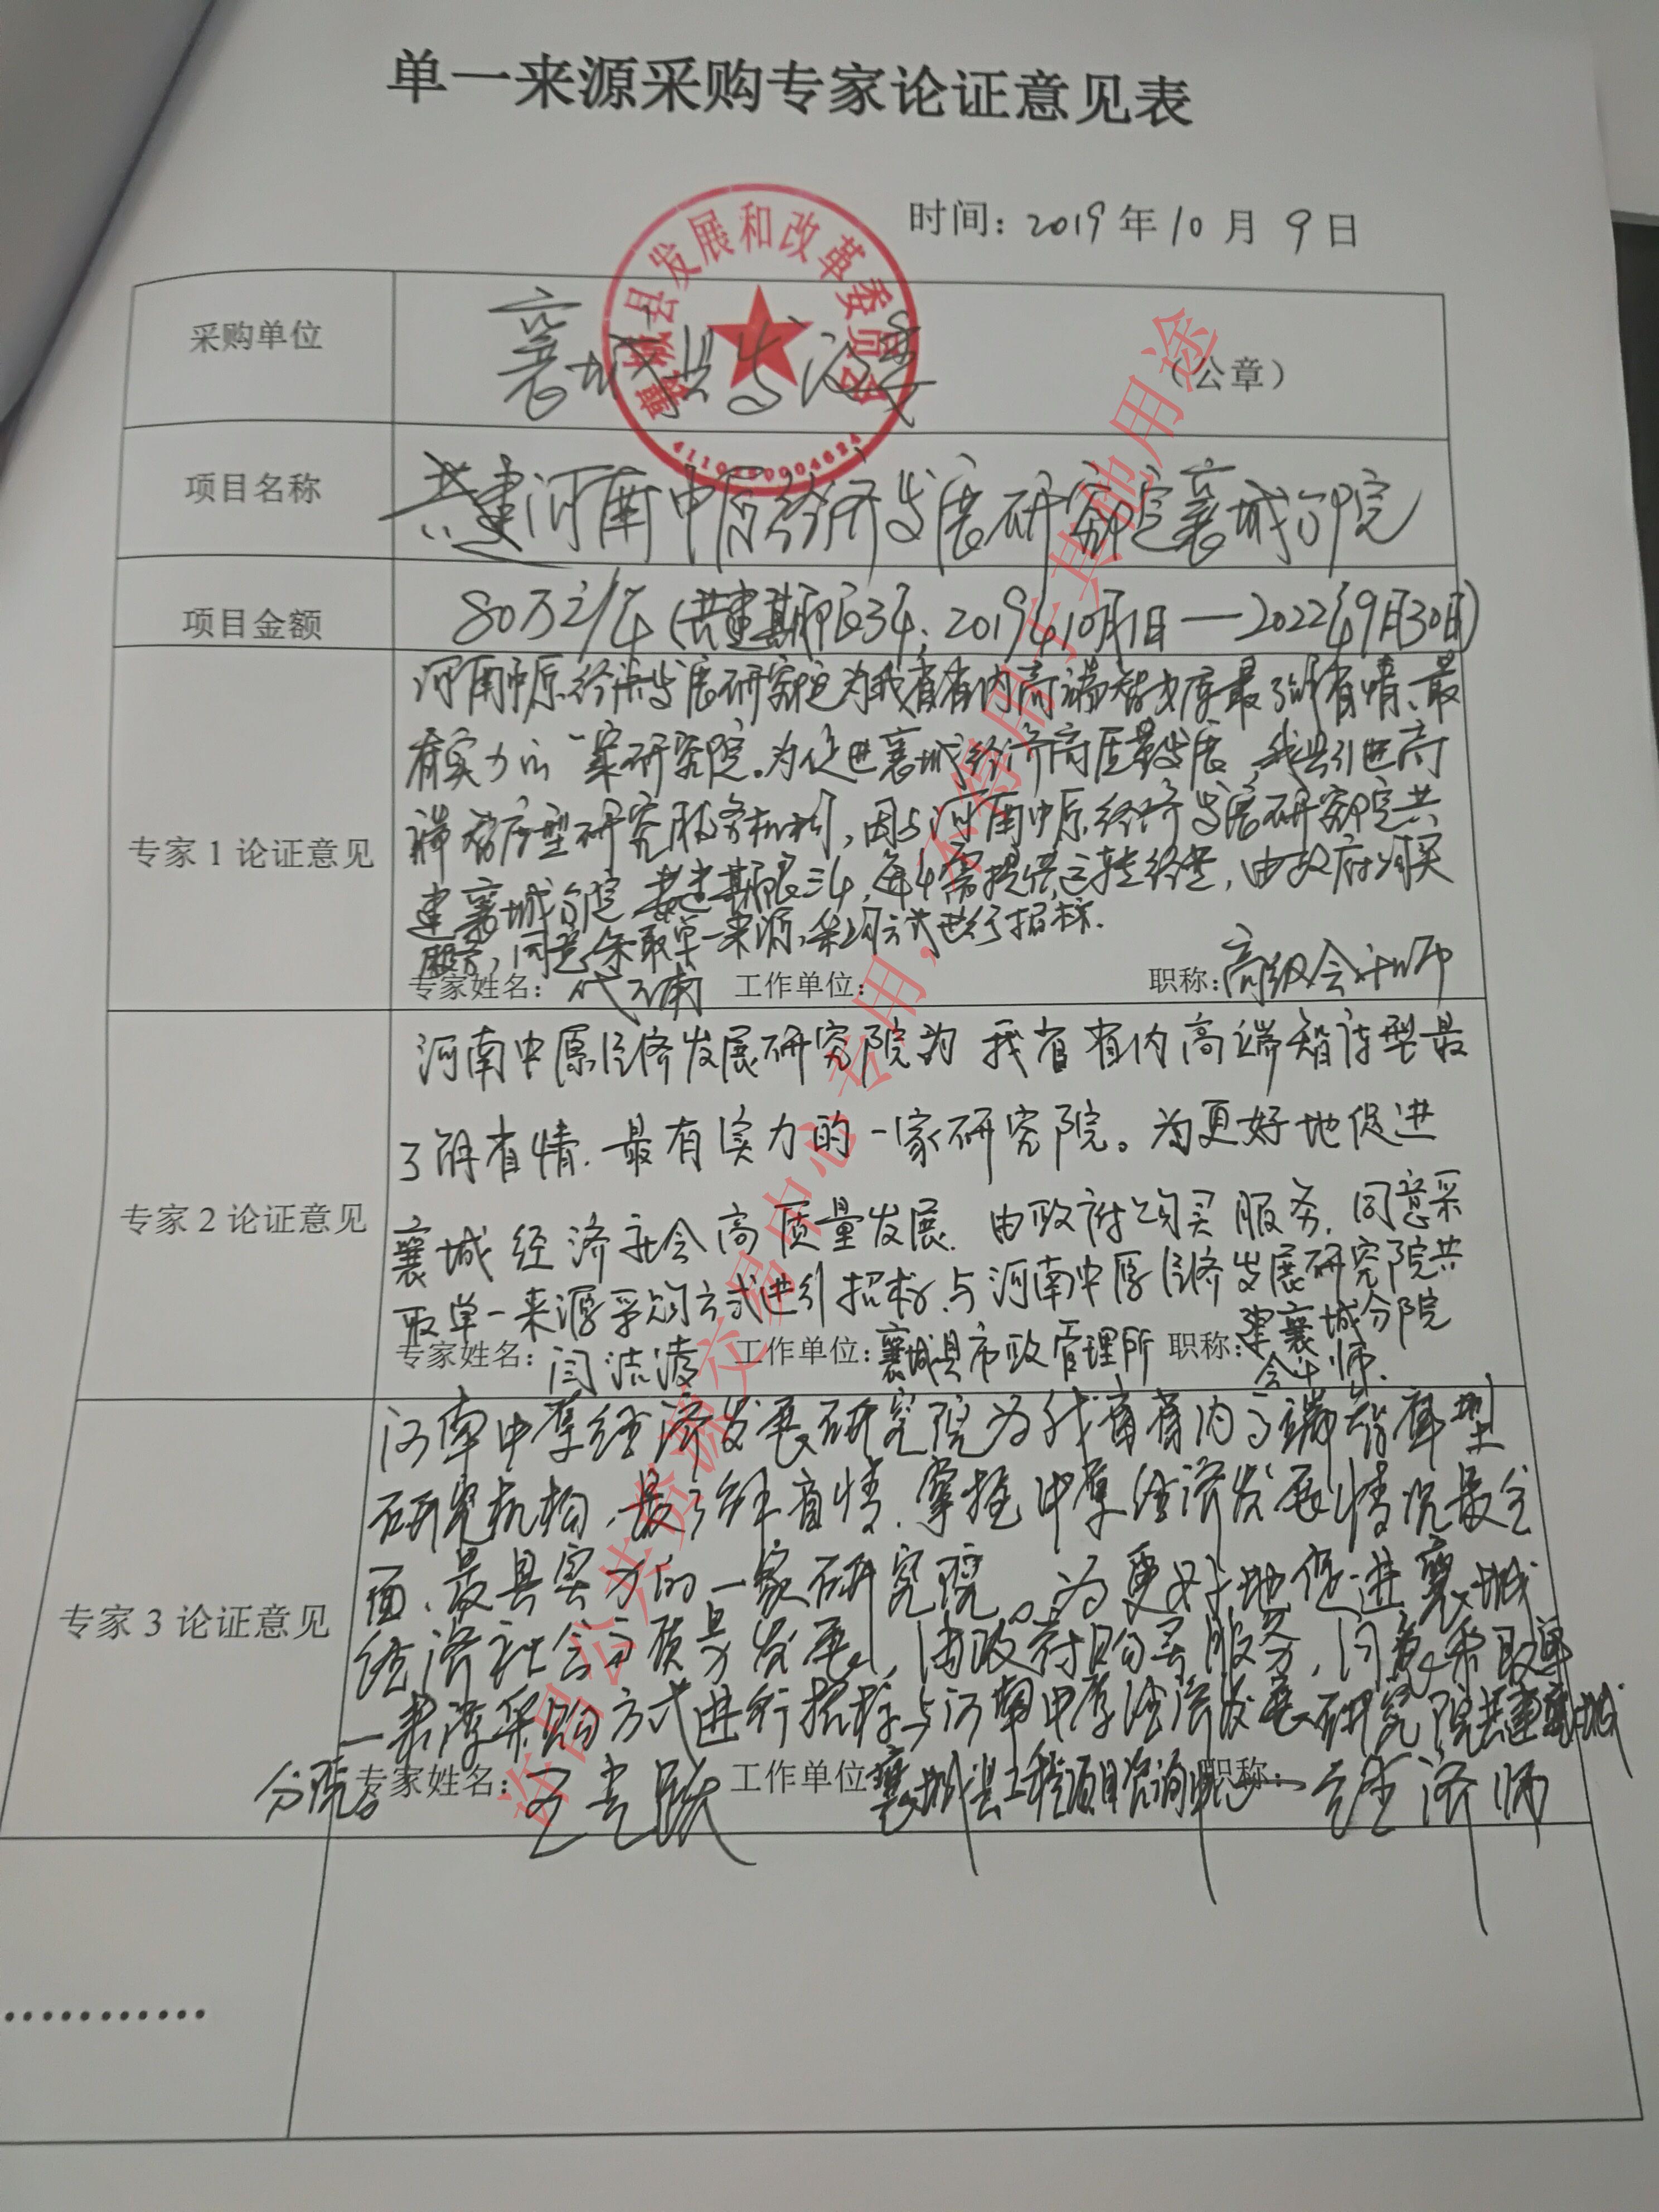 单一来源采购专家论证意见表
时间：2019年10月9日
襄城县发展和改革委员会
4110250004624
采购单位 襄城县发改委 （公章）
项目名称 共建河南中原经济发展研究院襄城分院
项目金额 80万元/年（共建期限3年，2019年10月1日—2022年9月30日）
专家1论证意见
河南中原经济发展研究院为我省省内高端智库最了解省情、最
有实力的一家研究院。为促进襄城经济高质量发展，我县引进高
端智库型研究服务机构，因与河南中原经济发展研究院共
建襄城分院，共建期限三年，每年需提供运转经费，由政府购买
服务，同意采取单一来源采购方式进行招标.
专家姓名： 工作单位： 职称：高级会计师
专家2论证意见
河南中原经济发展研究院为我省省内高端智库型最
了解省情.最有实力的一家研究院。为更好地促进
襄城经济社会高质量发展.由政府购买服务.同意采
取单一来源采购方式进行招标.与河南中原经济发展研究院共
建襄城分院
专家姓名：闫洁 工作单位：襄城县市政管理所 职称：会计师.
专家3论证意见
河南中原经济发展研究院为我省省内高端智库型
研究机构，最了解省情.掌握中原经济发展情况最全
面、最具实力的一家研究院。为更好地促进襄城
经济社会高质量发展，由政府购买服务，同意采取单
一来源采购方式进行招标与河南中原经济发展研究院共建襄城
分院。
专家姓名：王 跃 工作单位：襄城县工程项目咨询中心 职称：经济师
…………
许昌公共资源交易中心专用，不得用于其他用途